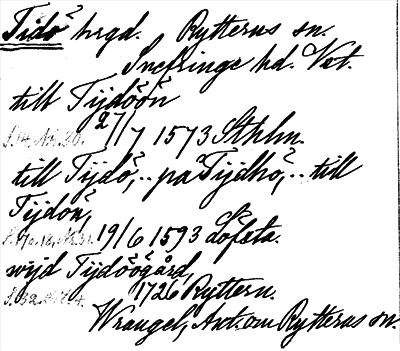 Tidö hrgd. Rytterns sn.
Snefringe hd. Vst.
till Tijdöön
27/7 1573 Sthlm.
till Tijdö, .. pa Tijdhö, .. till
Tijdön,
19/6 1593 Löfsta.
wijd Tijdöögård,
1726 Ryttern.
Wrangel, Ant. om Rytterns sn.